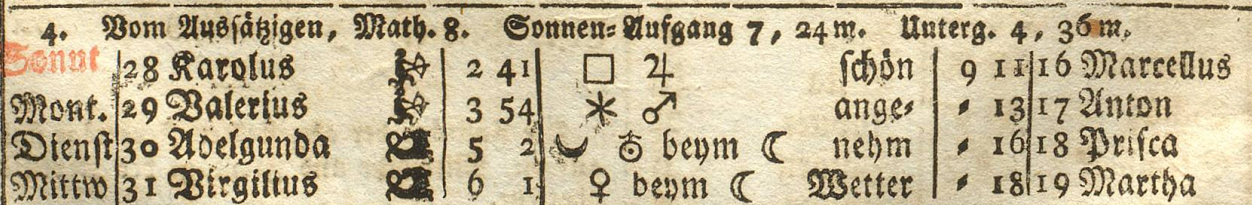 4. Vom Aussätzigen, Math. 8. Sonnen-Aufgang 7, 24 m. Unterg. 4, 36 m.
Sonnt 28 Karolus 2 41 □ ♃ schön 9 11 16 Marcellus
Mont. 29 Valerius 3 54 ⚹ ♂ ange- - 13 17 Anton
Dienst 30 Adelgunda 5 2 ☾ ♁ beym ☾ nehm - 16 18 Prisca
Mittw 31 Virgilius 6 1 ♀ beym ☾ Wetter - 18 19 Martha